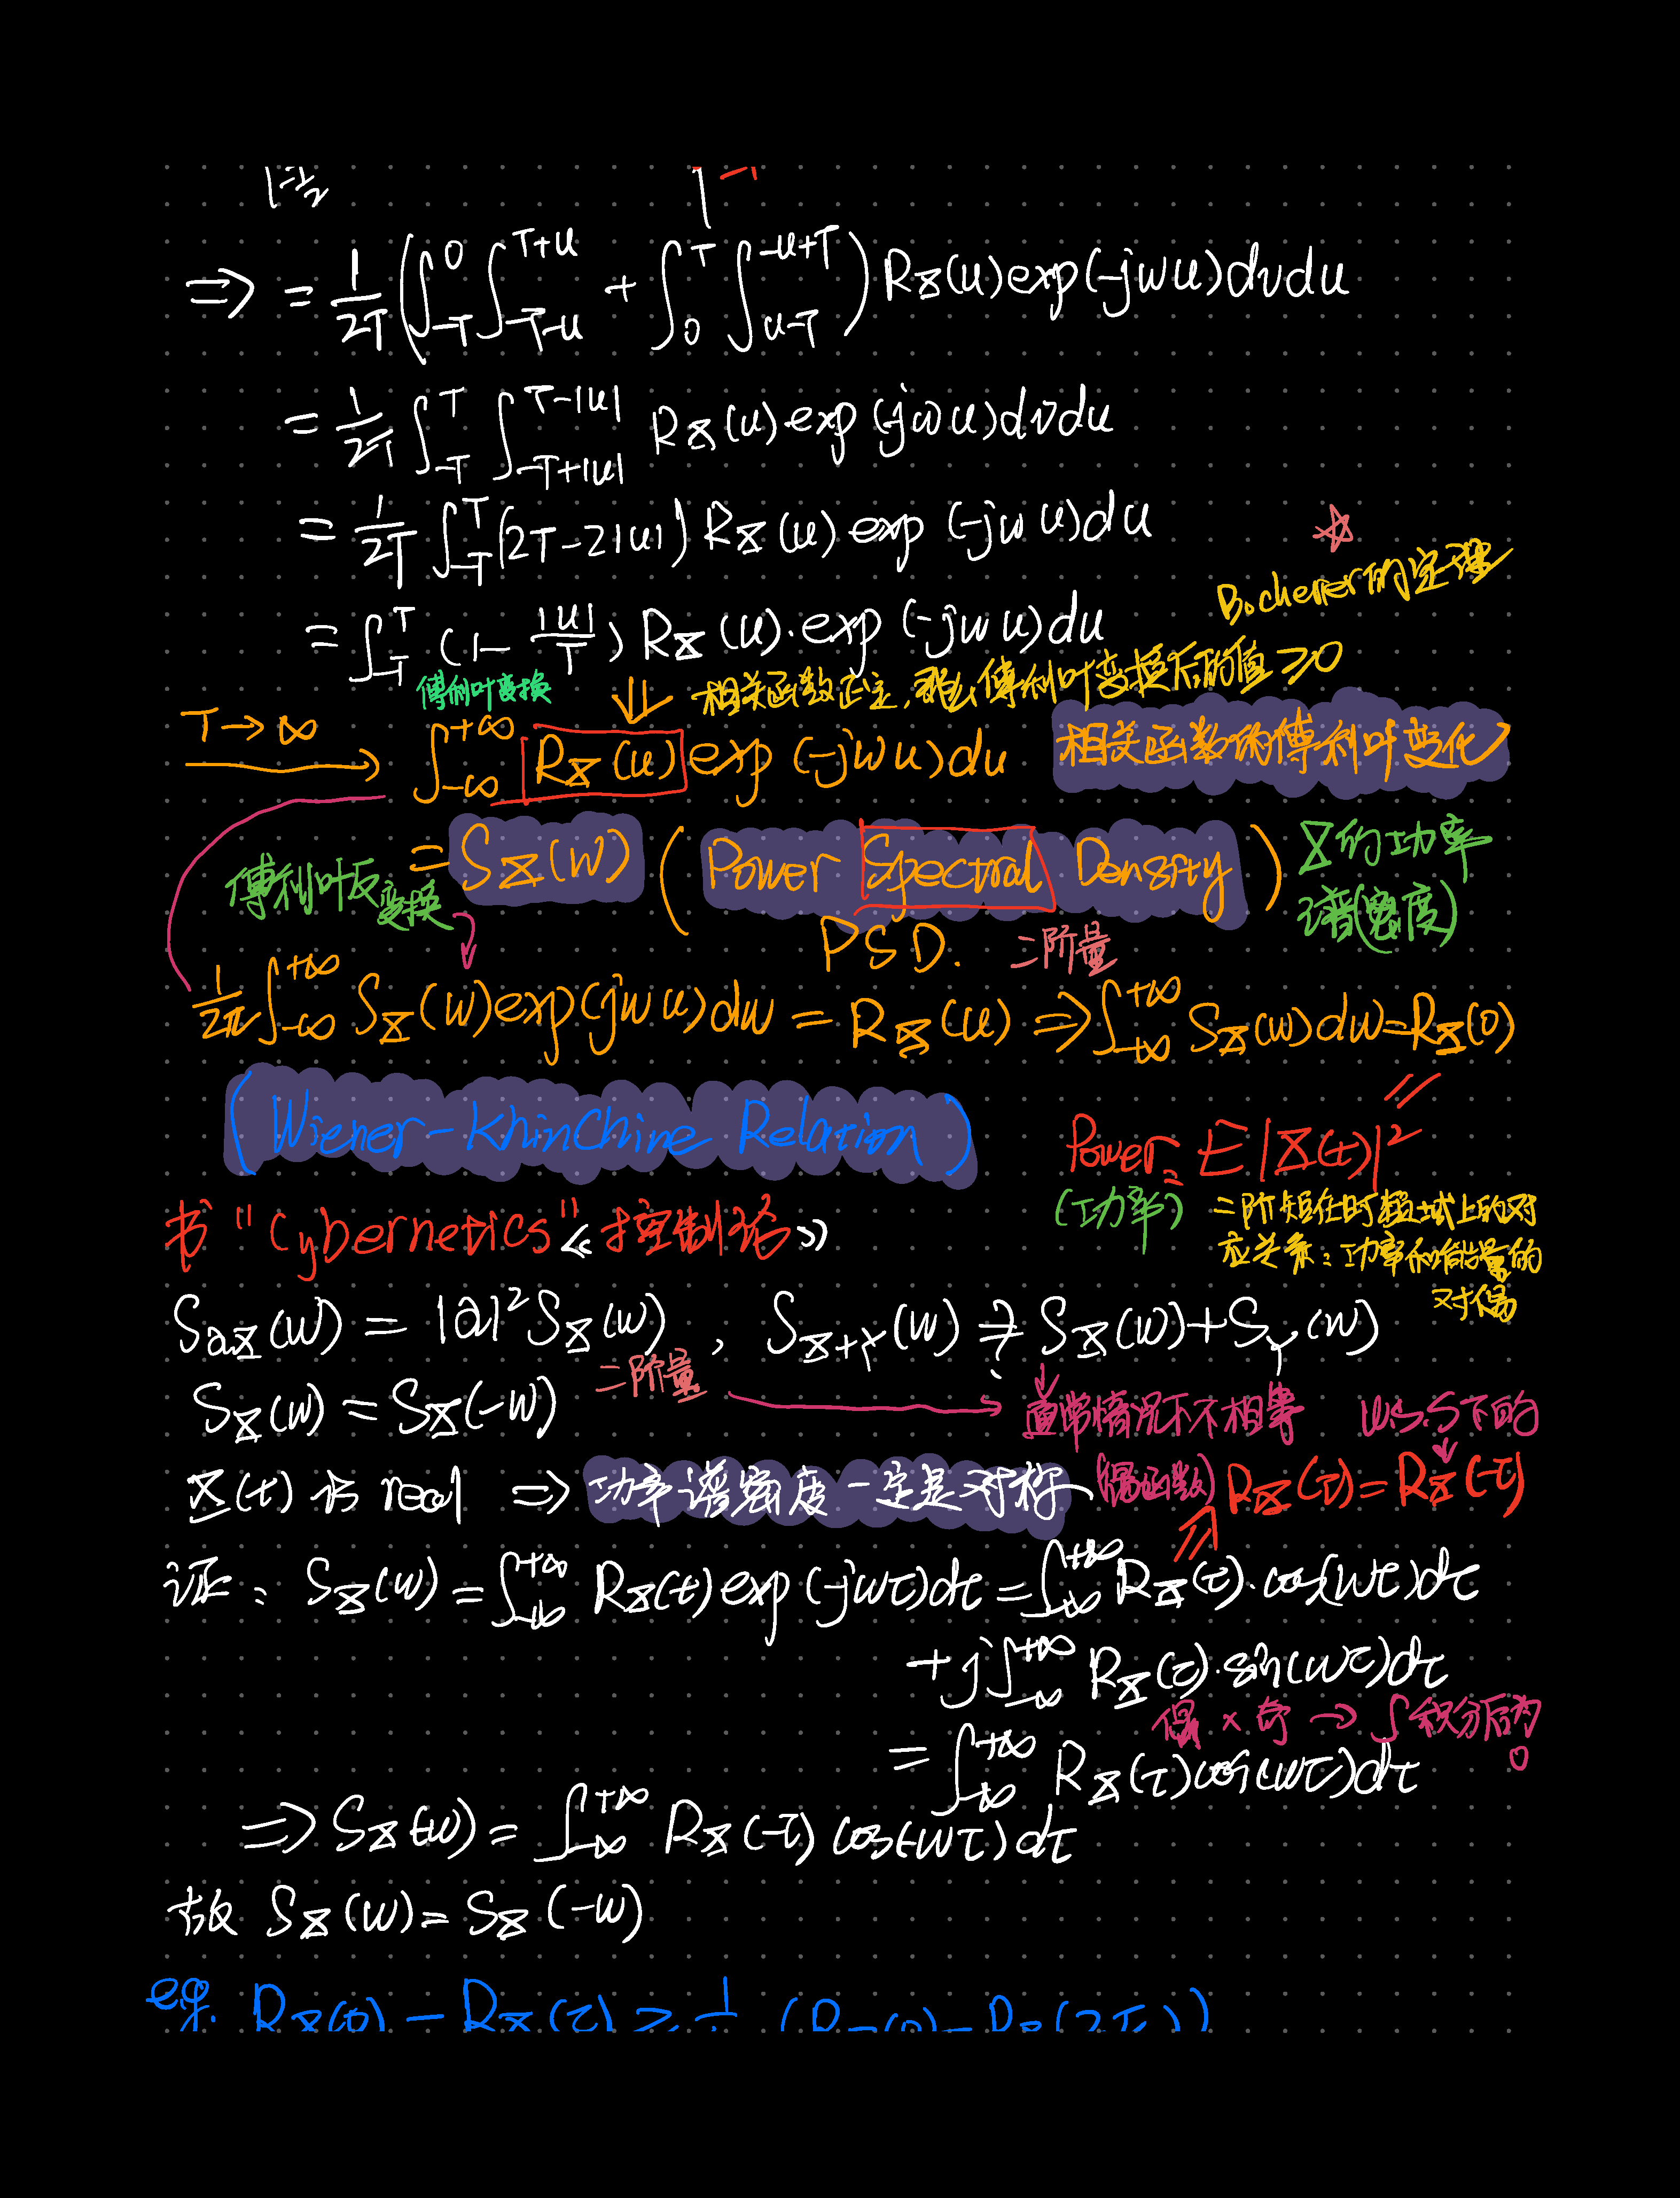 ⇒ = 1/2T (∫_{-T}^{0} ∫_{-T-u}^{T+u} + ∫_{0}^{T} ∫_{u-T}^{-u+T}) R_X(u) exp(-jwu) dv du
= 1/2T ∫_{-T}^{T} ∫_{-T+|u|}^{T-|u|} R_X(u) exp(-jwu) dv du
= 1/2T ∫_{-T}^{T} (2T-2|u|) R_X(u) exp(-jwu) du
☆
Bochener的定理
= ∫_{-T}^{T} (1- |u|/T) R_X(u)·exp(-jwu) du
傅利叶变换 ⇓ 相关函数正定,那么傅利叶变换后的值≥0
T→∞ ∫_{-∞}^{+∞} R_X(u) exp(-jwu) du 相关函数的傅利叶变化
= S_X(w) (Power Spectral Density) X的功率
谱(密度)
傅利叶反
变换
PSD. 二阶量
1/2π ∫_{-∞}^{+∞} S_X(w) exp(jwu) dw = R_X(u) ⇒ ∫_{-∞}^{+∞} S_X(w) dw = R_X(0)
(Wiener-Khinchine Relation)
Power = E|X(t)|²
(功率)
二阶矩在时频域上的对
应关系:功率和能量的
对偶
书 "Cybernetics" 《控制论》
S_{aX}(w) = |a|² S_X(w) , S_{X+Y}(w) ≠ S_X(w)+S_Y(w)
二阶量 ?
S_X(w) = S_X(-w) → 通常情况下不相等 W.S.S下的
X(t) 为 real ⇒ 功率谱密度一定是对称 (偶函数) R_X(τ) = R_X(-τ)
证: S_X(w) = ∫_{-∞}^{+∞} R_X(t) exp(-jwτ) dτ = ∫_{-∞}^{+∞} R_X(τ)·cos(wτ) dτ
+ j∫_{-∞}^{+∞} R_X(τ)·sin(wτ) dτ
偶 × 奇 → ∫积分后为0
= ∫_{-∞}^{+∞} R_X(τ) cos(wτ) dτ
⇒ S_X(-w) = ∫_{-∞}^{+∞} R_X(-τ) cos(-wτ) dτ
故 S_X(w) = S_X(-w)
eg. R_X(0) - R_X(τ) ≥ (R_X(0) - R_X(2τ))